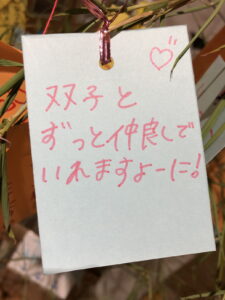 双子と
ずっと仲良しで
いれますよーに!